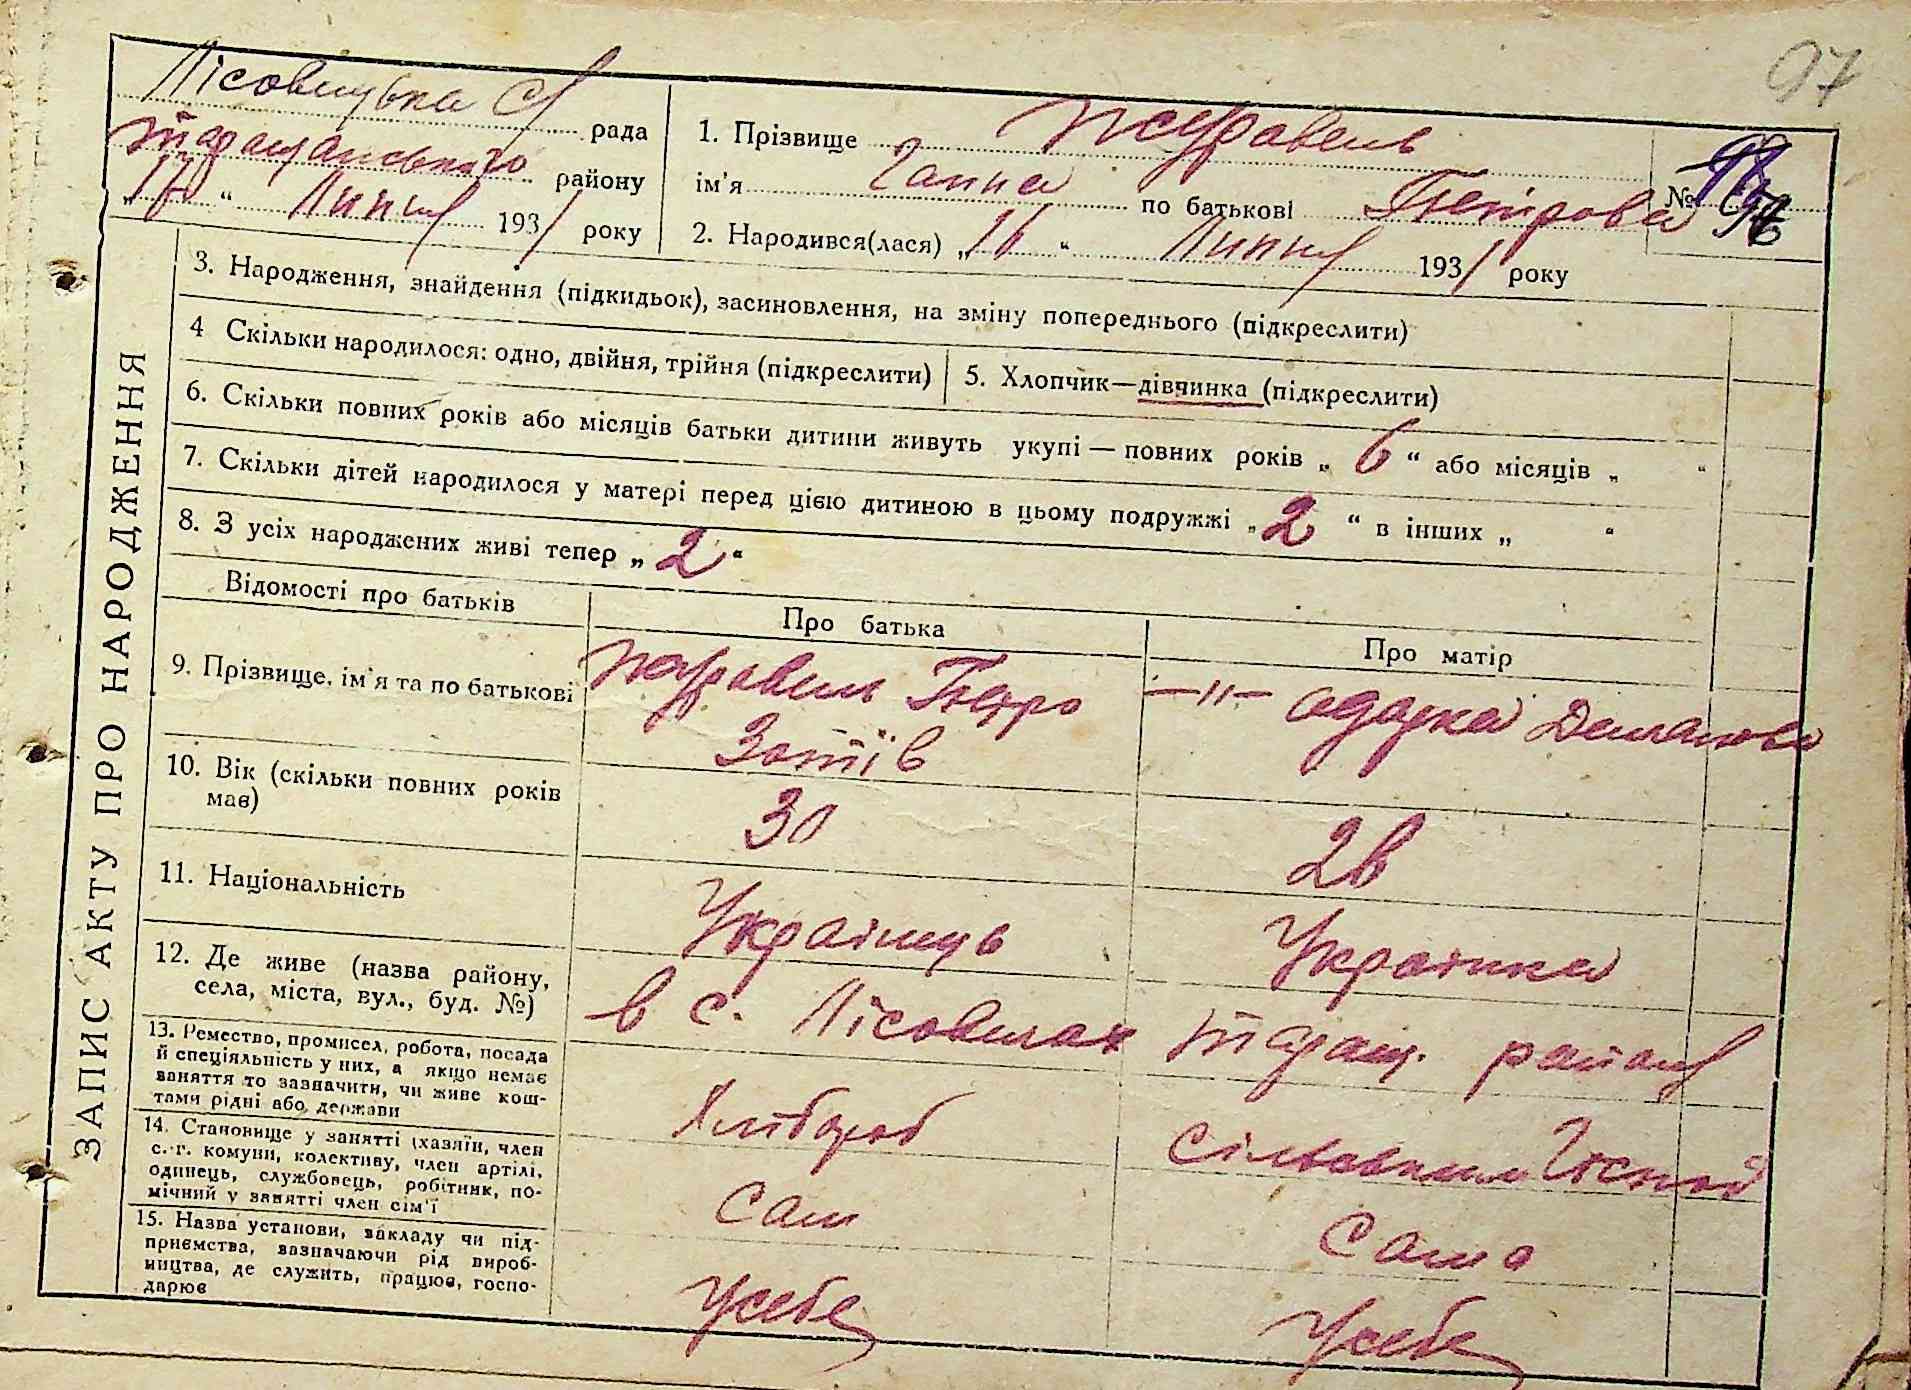 97
Лісовицька С/ рада
Таращанського району
„17“ Липня 1931 року
1. Прізвище Журавель
ім'я Ганна по батькові Петрова
№ 97
2. Народився(лася) „16“ Липня 1931 року
ЗАПИС АКТУ ПРО НАРОДЖЕННЯ
3. Народження, знайдення (підкидьок), засиновлення, на зміну попереднього (підкреслити)
4 Скільки народилося: одно, двійня, трійня (підкреслити)
5. Хлопчик—дівчинка (підкреслити)
6. Скільки повних років або місяців батьки дитини живуть укупі — повних років „6“ або місяців „ “
7. Скільки дітей народилося у матері перед цією дитиною в цьому подружжі „2“ в інших „ “
8. З усіх народжених живі тепер „2“
Відомості про батьків
Про батька
Про матір
9. Прізвище, ім'я та по батькові
Журавель Петро
Зотів
—ıı— Одарка
10. Вік (скільки повних років
має)
30
11. Національність
Українець
Українка
12. Де живе (назва району,
села, міста, вул., буд. №)
в с. Лісовичах Таращ. району
13. Ремество, промисел, робота, посада
й спеціяльність у них, а якщо немає
заняття то зазначити, чи живе кош-
тами рідні або держави
Хлібороб
14. Становище у занятті (хазяїн, член
с.-г. комуни, колективу, член артілі,
одинець, службовець, робітник, по-
мічний у занятті член сім'ї
Сам
Сама
15. Назва установи, закладу чи під-
приємства, зазначаючи рід вироб-
ництва, де служить, працює, госпо-
дарює
Усебе
Усебе